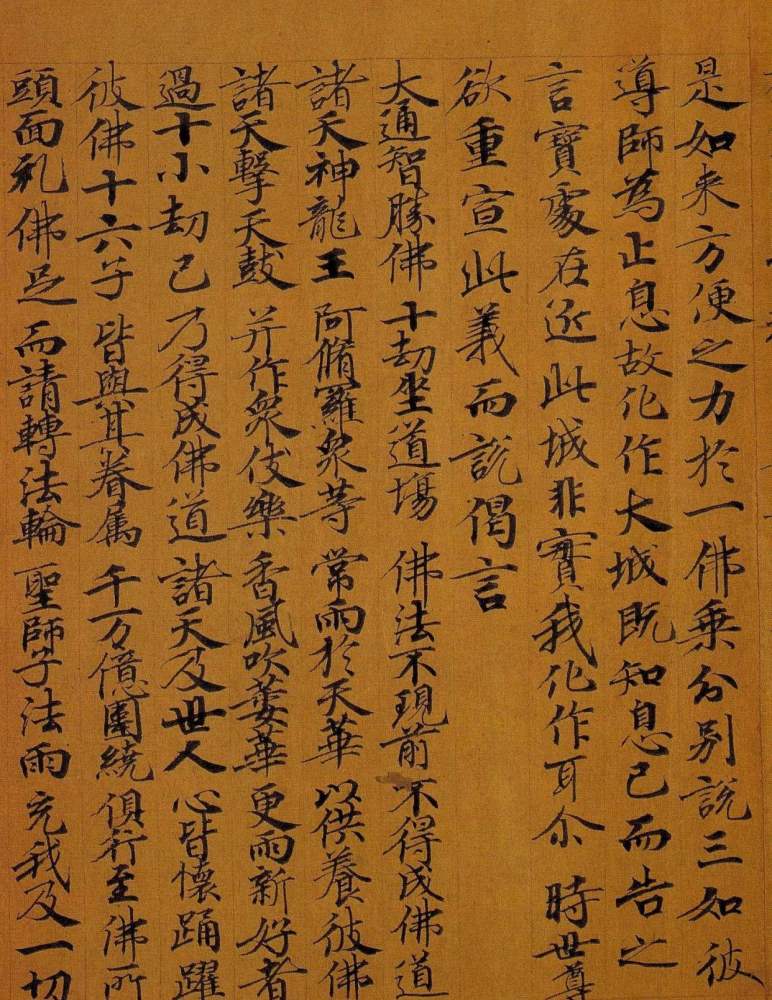 是如来方便之力於一佛乗分别說三如彼
導師為止息故化作大城既知息已而告之
言寳處在近此城非實我化作耳尒時世尊
欲重宣此義而說偈言
大通智勝佛 十劫坐道場 佛法不現前 不得成佛道
諸天神龍王 阿脩羅衆等 常雨於天華 以供養彼佛
諸天擊天鼓 并作衆伎樂 香風吹萎華 更雨新好者
過十小劫已 乃得成佛道 諸天及世人 心皆懷踊躍
彼佛十六子 皆與其眷属 千万億圍繞 俱行至佛所
頭面礼佛足 而請轉法輪 聖師子法雨 充我及一切